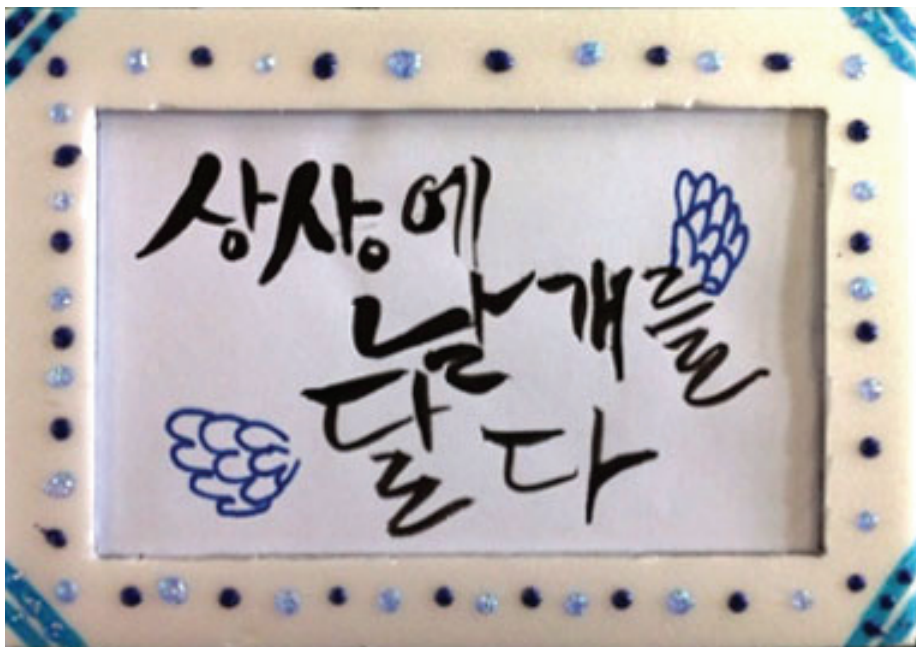 상상에
날개를
달다